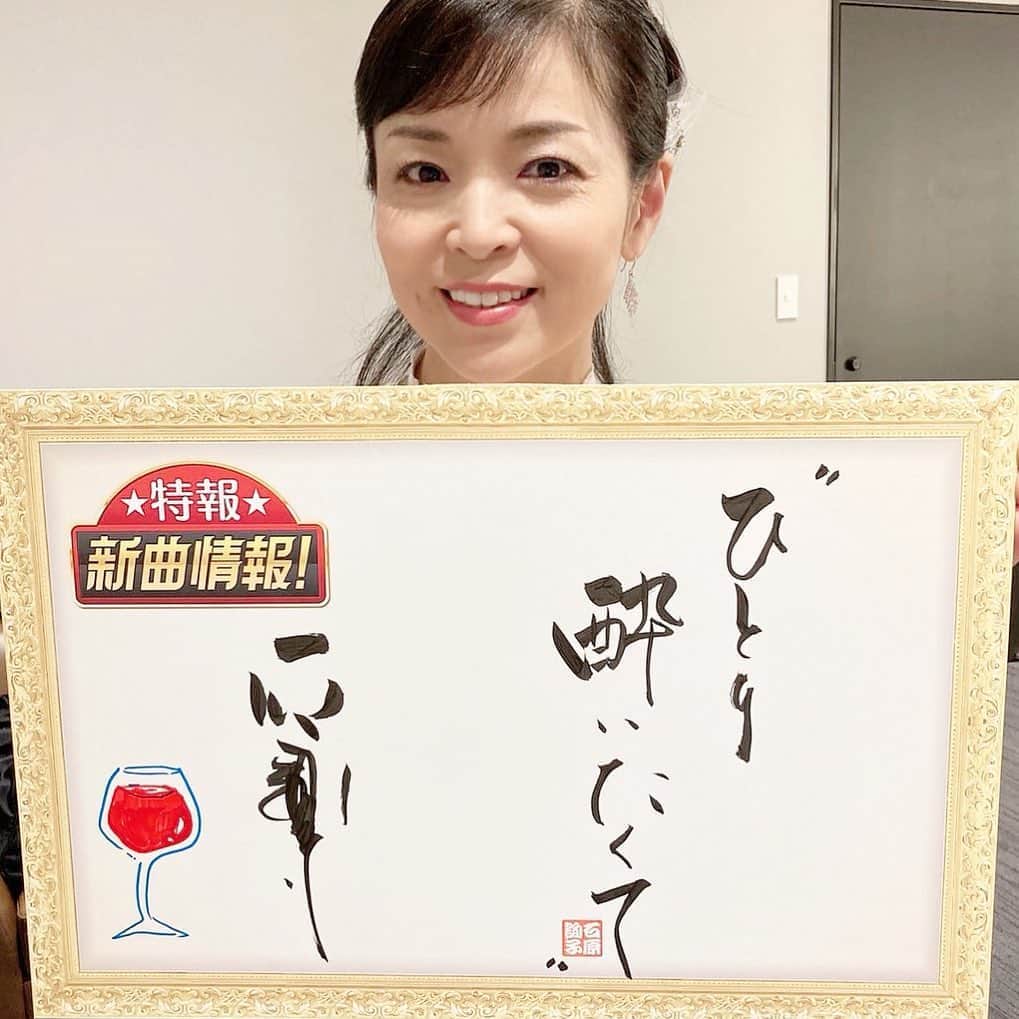 ★特報★
新曲情報!
"ひとり
酔いたくて"
石原
詢子